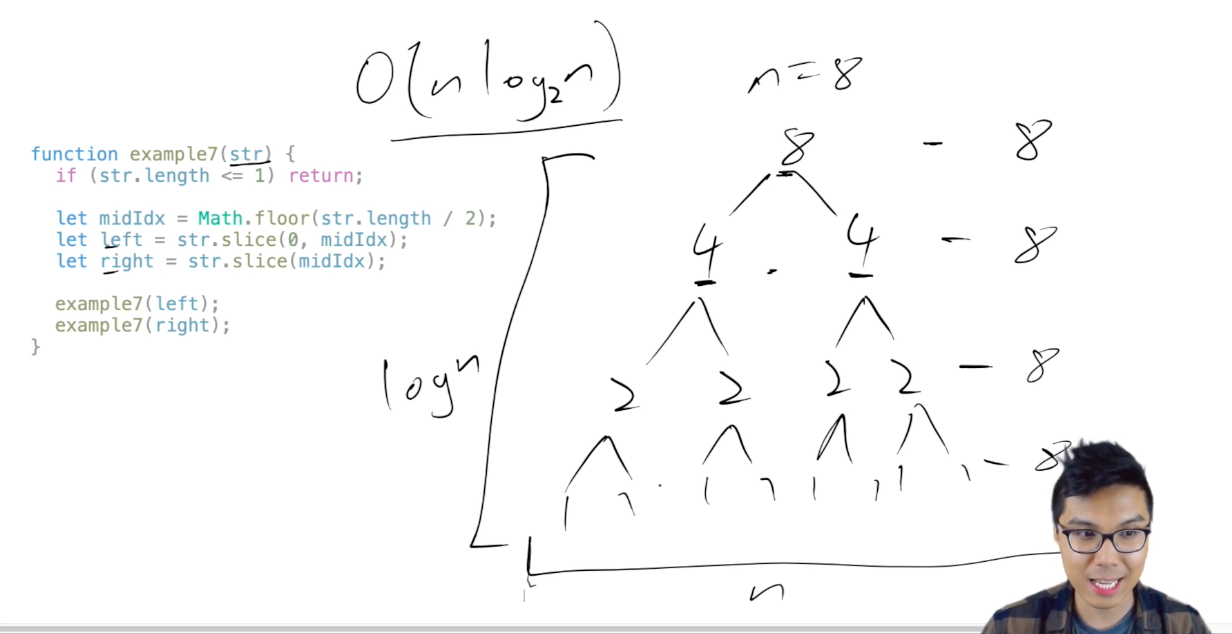 O(n log₂n)
n=8
function example7(str) {
  if (str.length <= 1) return;
  let midIdx = Math.floor(str.length / 2);
  let left = str.slice(0, midIdx);
  let right = str.slice(midIdx);
  example7(left);
  example7(right);
}
8 - 8
4 . 4 - 8
log n
2 2 2 2 - 8
1 1 . 1 1 1 1 1 1 - 8
n